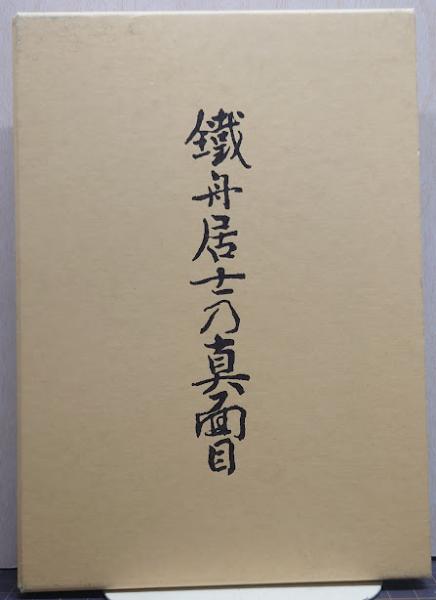 鐵舟居士乃真面目